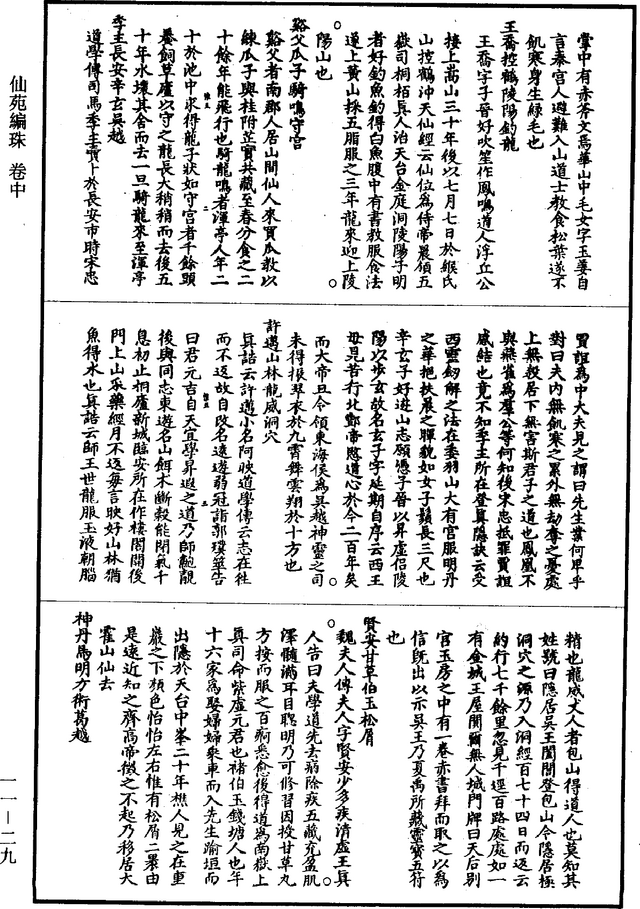 掌中有赤斧文焉華山中毛女字玉姜自
言秦宫人避難入山道士教食松葉遂不
飢寒身生緑毛也
王喬控鶴陵陽釣龍
王喬字子晉好吹笙作鳳鳴道人浮丘公
接上嵩山三十年後以七月七日於緱氏
山控鶴沖天仙經云仙位為侍帝晨領五
嶽司桐栢真人治天台金庭洞陵陽子明
者好釣魚釣得白魚腹中有書教服食法
遂上黄山採五脂服之三年龍來迎上陵
陽山也
谿父瓜子騎鳴守宫
谿父者南郡人居山間仙人來買瓜教以
鍊瓜子與桂附芷實共藏至春分食之二
十餘年能飛行也騎龍鳴者渾亭人年二
十於池中求得龍子狀如守宫者千餘頭
養飼草廬以守之龍長大稍稍而去後五
十年水壞其舍而去一旦騎龍來至渾亭
季主長安辛玄吳越
道學傳司馬季主賣卜於長安市時宋忠
賈誼為中大夫見之謂曰先生業何卑乎
對曰夫内無飢寒之累外無劫奪之憂處
上無殺居下無害斯君子之道也鳳凰不
與燕雀為羣公等何知後宋忠抵罪賈誼
感結也竟不知季主所在登真隱訣云受
西靈劒解之法在委羽山大有宫服明丹
之華挹扶晨之暉貌如女子鬚長三尺也
辛玄子好遊山志願憑子晉以昇虚侣陵
陽以步玄故名玄子字延期自序云西王
母見苦行北酆帝愍道心於今二百年矣
而大帝且令領東海侯為吳越神靈之司
未得振翠衣於九霄舞雲翔於十方也
許邁山林龍威洞穴
真誥云許邁小名阿映道學傳云志在往
而不返故自改名遠遊弱冠詣郭璞筮告
曰君元吉自天宜學昇遐之道乃師鮑靚
後與同志東遊名山餌木斷穀能閉氣千
息初止桐廬新城臨安所在作樓閣閒後
門上山采藥經月不返每言映好山林猶
魚得水也真誥云師王世龍服玉液朝腦
精也龍威丈人者包山得道人也莫知其
姓號曰隱居吳王闔閭登包山令隱居極
洞穴之源乃入洞經百七十四日而返云
約行七千餘里忽見千逕百路處處如一
有金城玉屋闃爾無人城門牌曰天后别
宫玉房之中有一卷赤書拜而取之以為
信既出以示吳王乃夏禹所藏靈寶五符
也
賢安甘草伯玉松屑
魏夫人傳夫人字賢安少多疾清虚王真
人告曰夫學道先去病除疾五藏充盈肌
澤髓滿耳目聰明乃可修習因授甘草丸
方按而服之百痾悉愈後得道為南嶽上
真司命紫虚元君也褚伯玉錢塘人也年
十六家為娶婦婦乘車而入先生踰垣而
出隱於天台中峯二十年樵人見之在重
巖之下顔色怡怡左右惟有松屑二裹由
是遠近知之齊高帝徵之不起乃移居大
霍山仙去
神丹馬明方術葛越
仙苑編珠 卷中
一一—二九